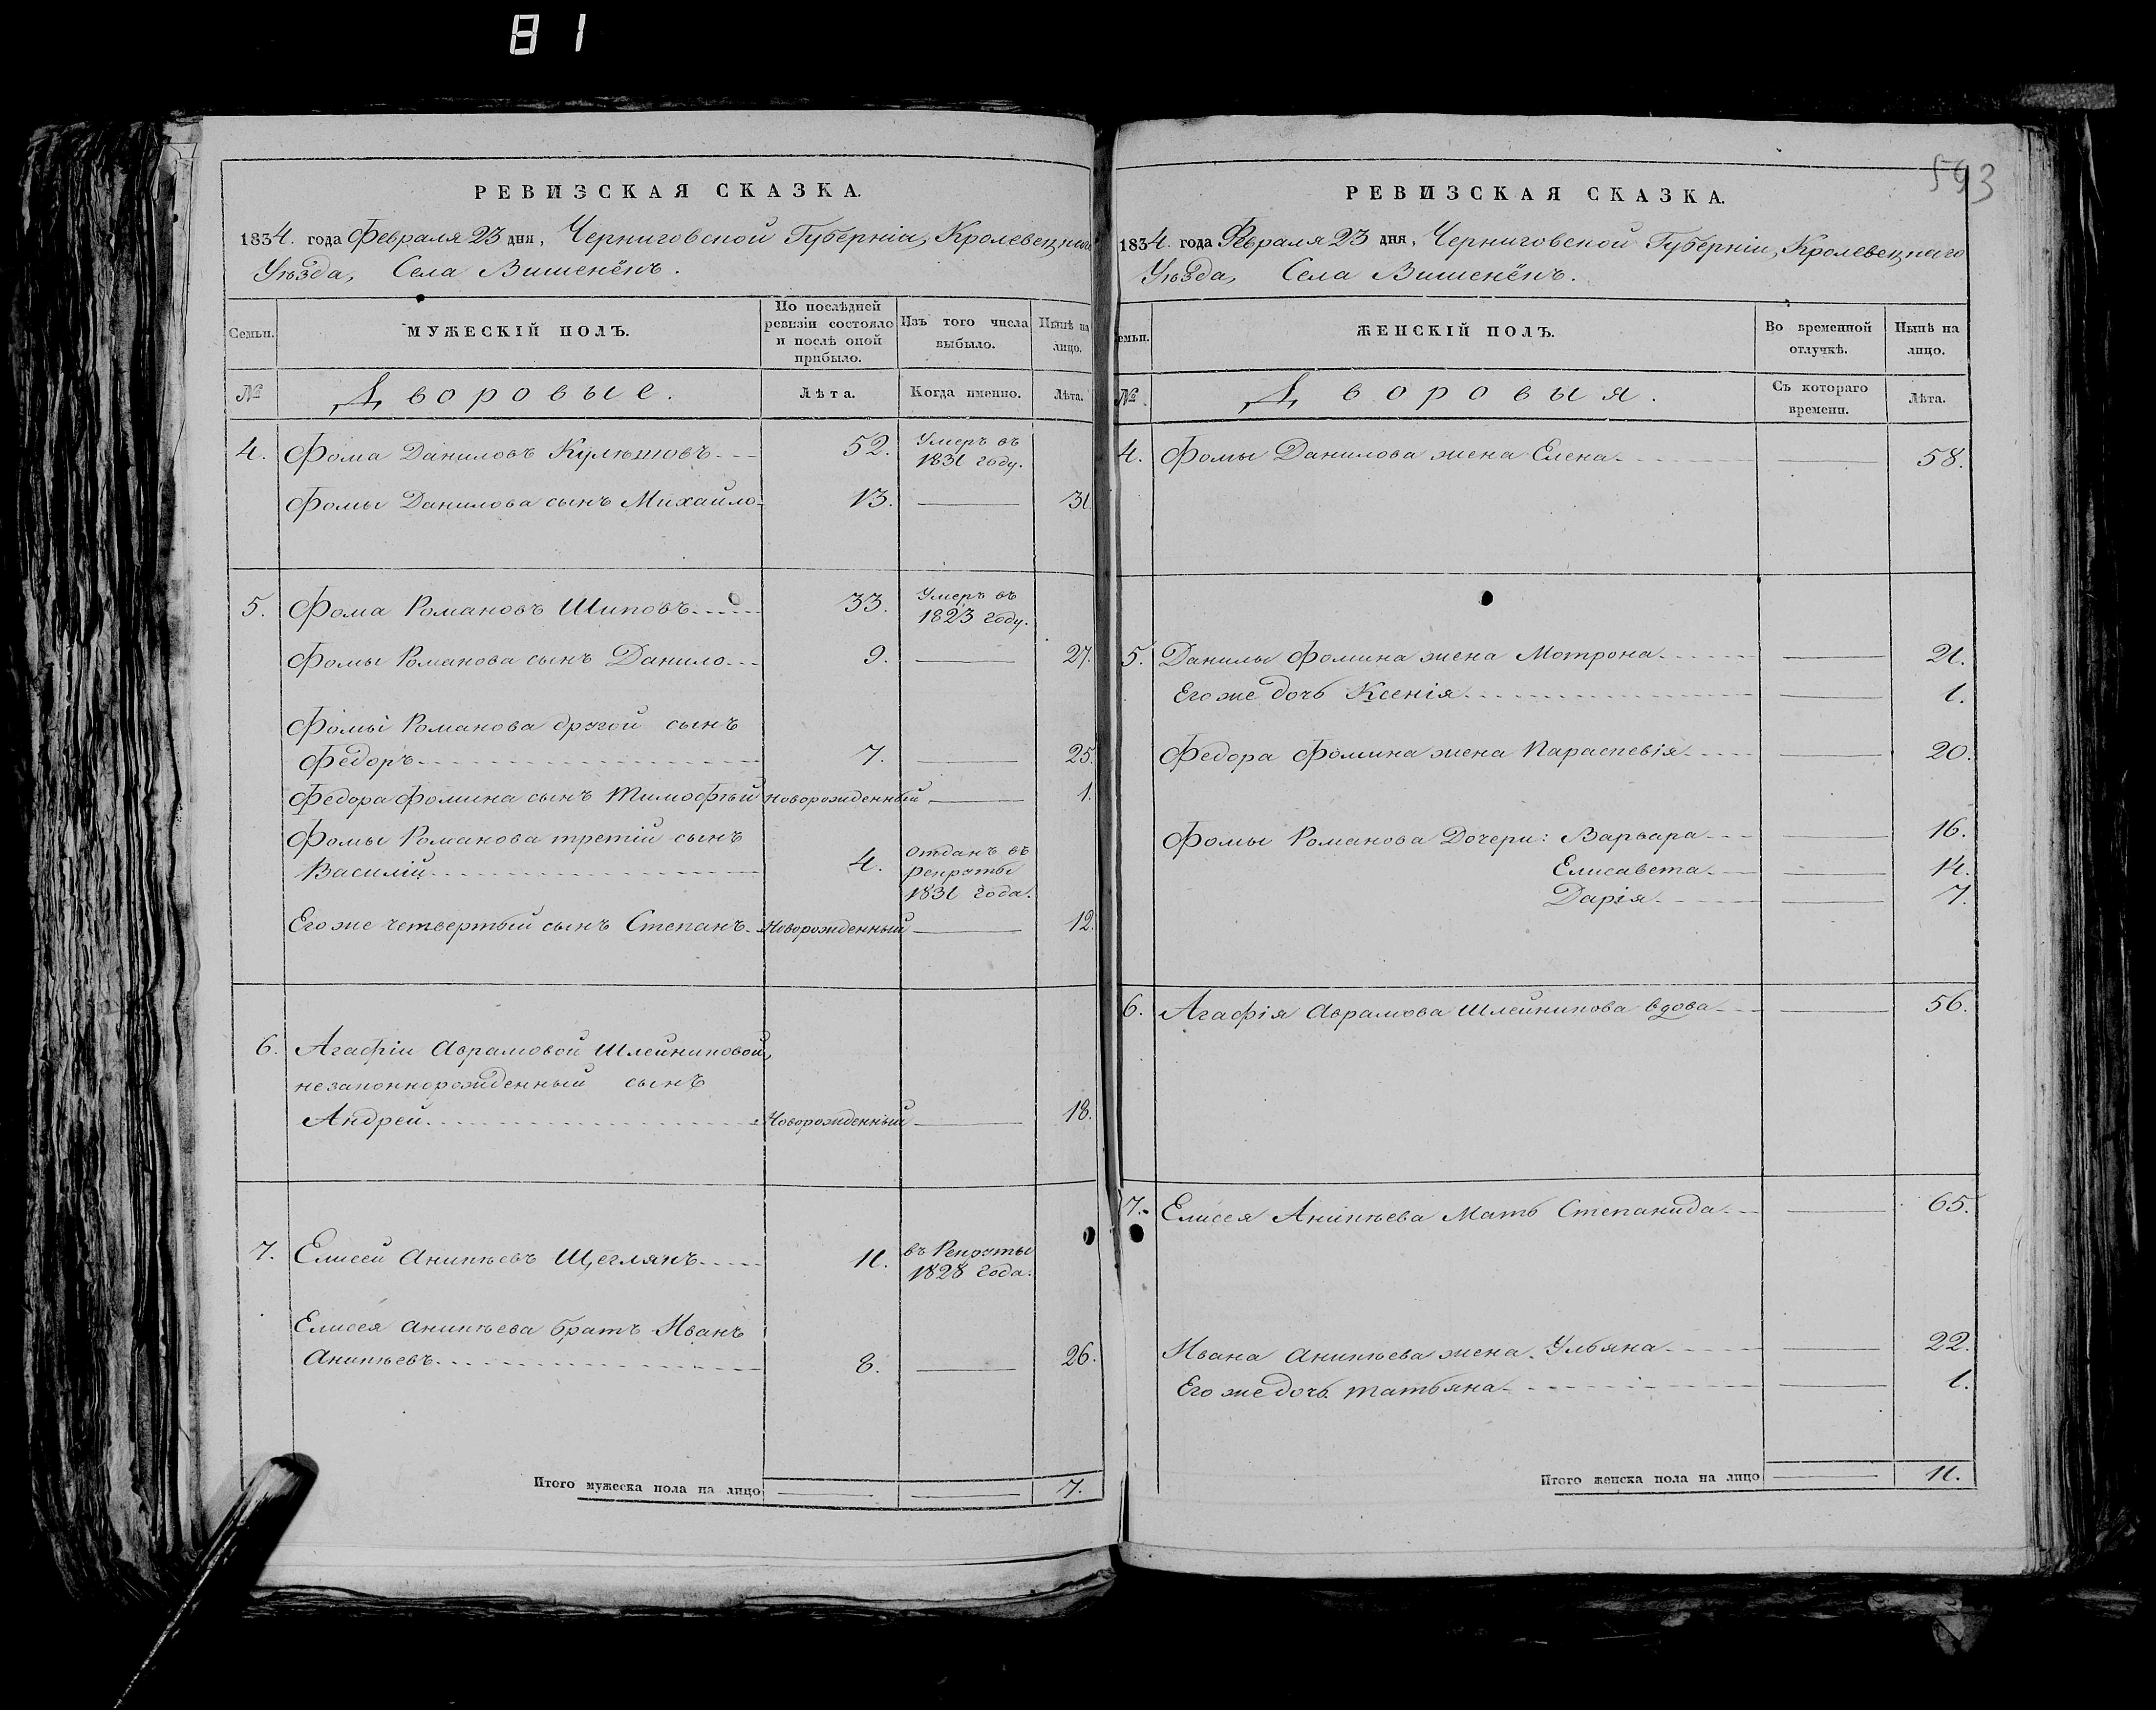 81
593
РЕВИЗСКАЯ СКАЗКА.
1834. года Февраля 23 дня, Черниговской Губерніи, Кролевецкаго
Уѣзда, Села Вишенёкъ.
Семьи.
МУЖЕСКІЙ ПОЛЪ.
По послѣдней ревизіи состояло и послѣ оной прибыло.
Изъ того числа выбыло.
Нынѣ на лицо.
№
Дворовые.
Лѣта.
Когда именно.
Лѣта.
4. Фома Даниловъ Кулѣшовъ 52. Умеръ въ 1831 году.
Фомы Данилова сынъ Михайло 13. 31.
5. Фома Романовъ Шиповъ 33. Умеръ въ 1823 году.
Фомы Романова сынъ Данило 9. 27.
Фомы Романова другой сынъ
Федоръ 7. 25.
Федора Фомина сынъ Тимофѣй новорожденный 1.
Фомы Романова третій сынъ
Василій 4. Отданъ въ рекруты 1831 года.
Его же четвертый сынъ Степанъ Новорожденный 12.
6. Агафіи Аврамовой Шлейниковой,
незаконнорожденный сынъ
Андрей Новорожденный 18.
7. Елисей Аникѣевъ Щеглякъ 11. въ Рекруты 1828 года.
Елисея Аникѣева братъ Иванъ
Аникѣевъ 8. 26.
Итого мужеска пола на лицо 7.
РЕВИЗСКАЯ СКАЗКА.
1834. года Февраля 23 дня, Черниговской Губерніи, Кролевецкаго
Уѣзда, Села Вишенёкъ.
Семьи.
ЖЕНСКІЙ ПОЛЪ.
Во временной отлучкѣ.
Нынѣ на лицо.
№
Дворовыя.
Съ котораго времени.
Лѣта.
4. Фомы Данилова жена Елена 58.
5. Данилы Фомина жена Мотрона 21.
Его же дочь Ксенія 1.
Федора Фомина жена Параскевія 20.
Фомы Романова Дочери: Варвара 16.
Елисавета 14.
Дарія 7.
6. Агафія Аврамова Шлейникова вдова 56.
7. Елисея Аникѣева Мать Степанида 65.
Ивана Аникѣева жена Ульяна 22.
Его же дочь Татьяна 1.
Итого женска пола на лицо 11.